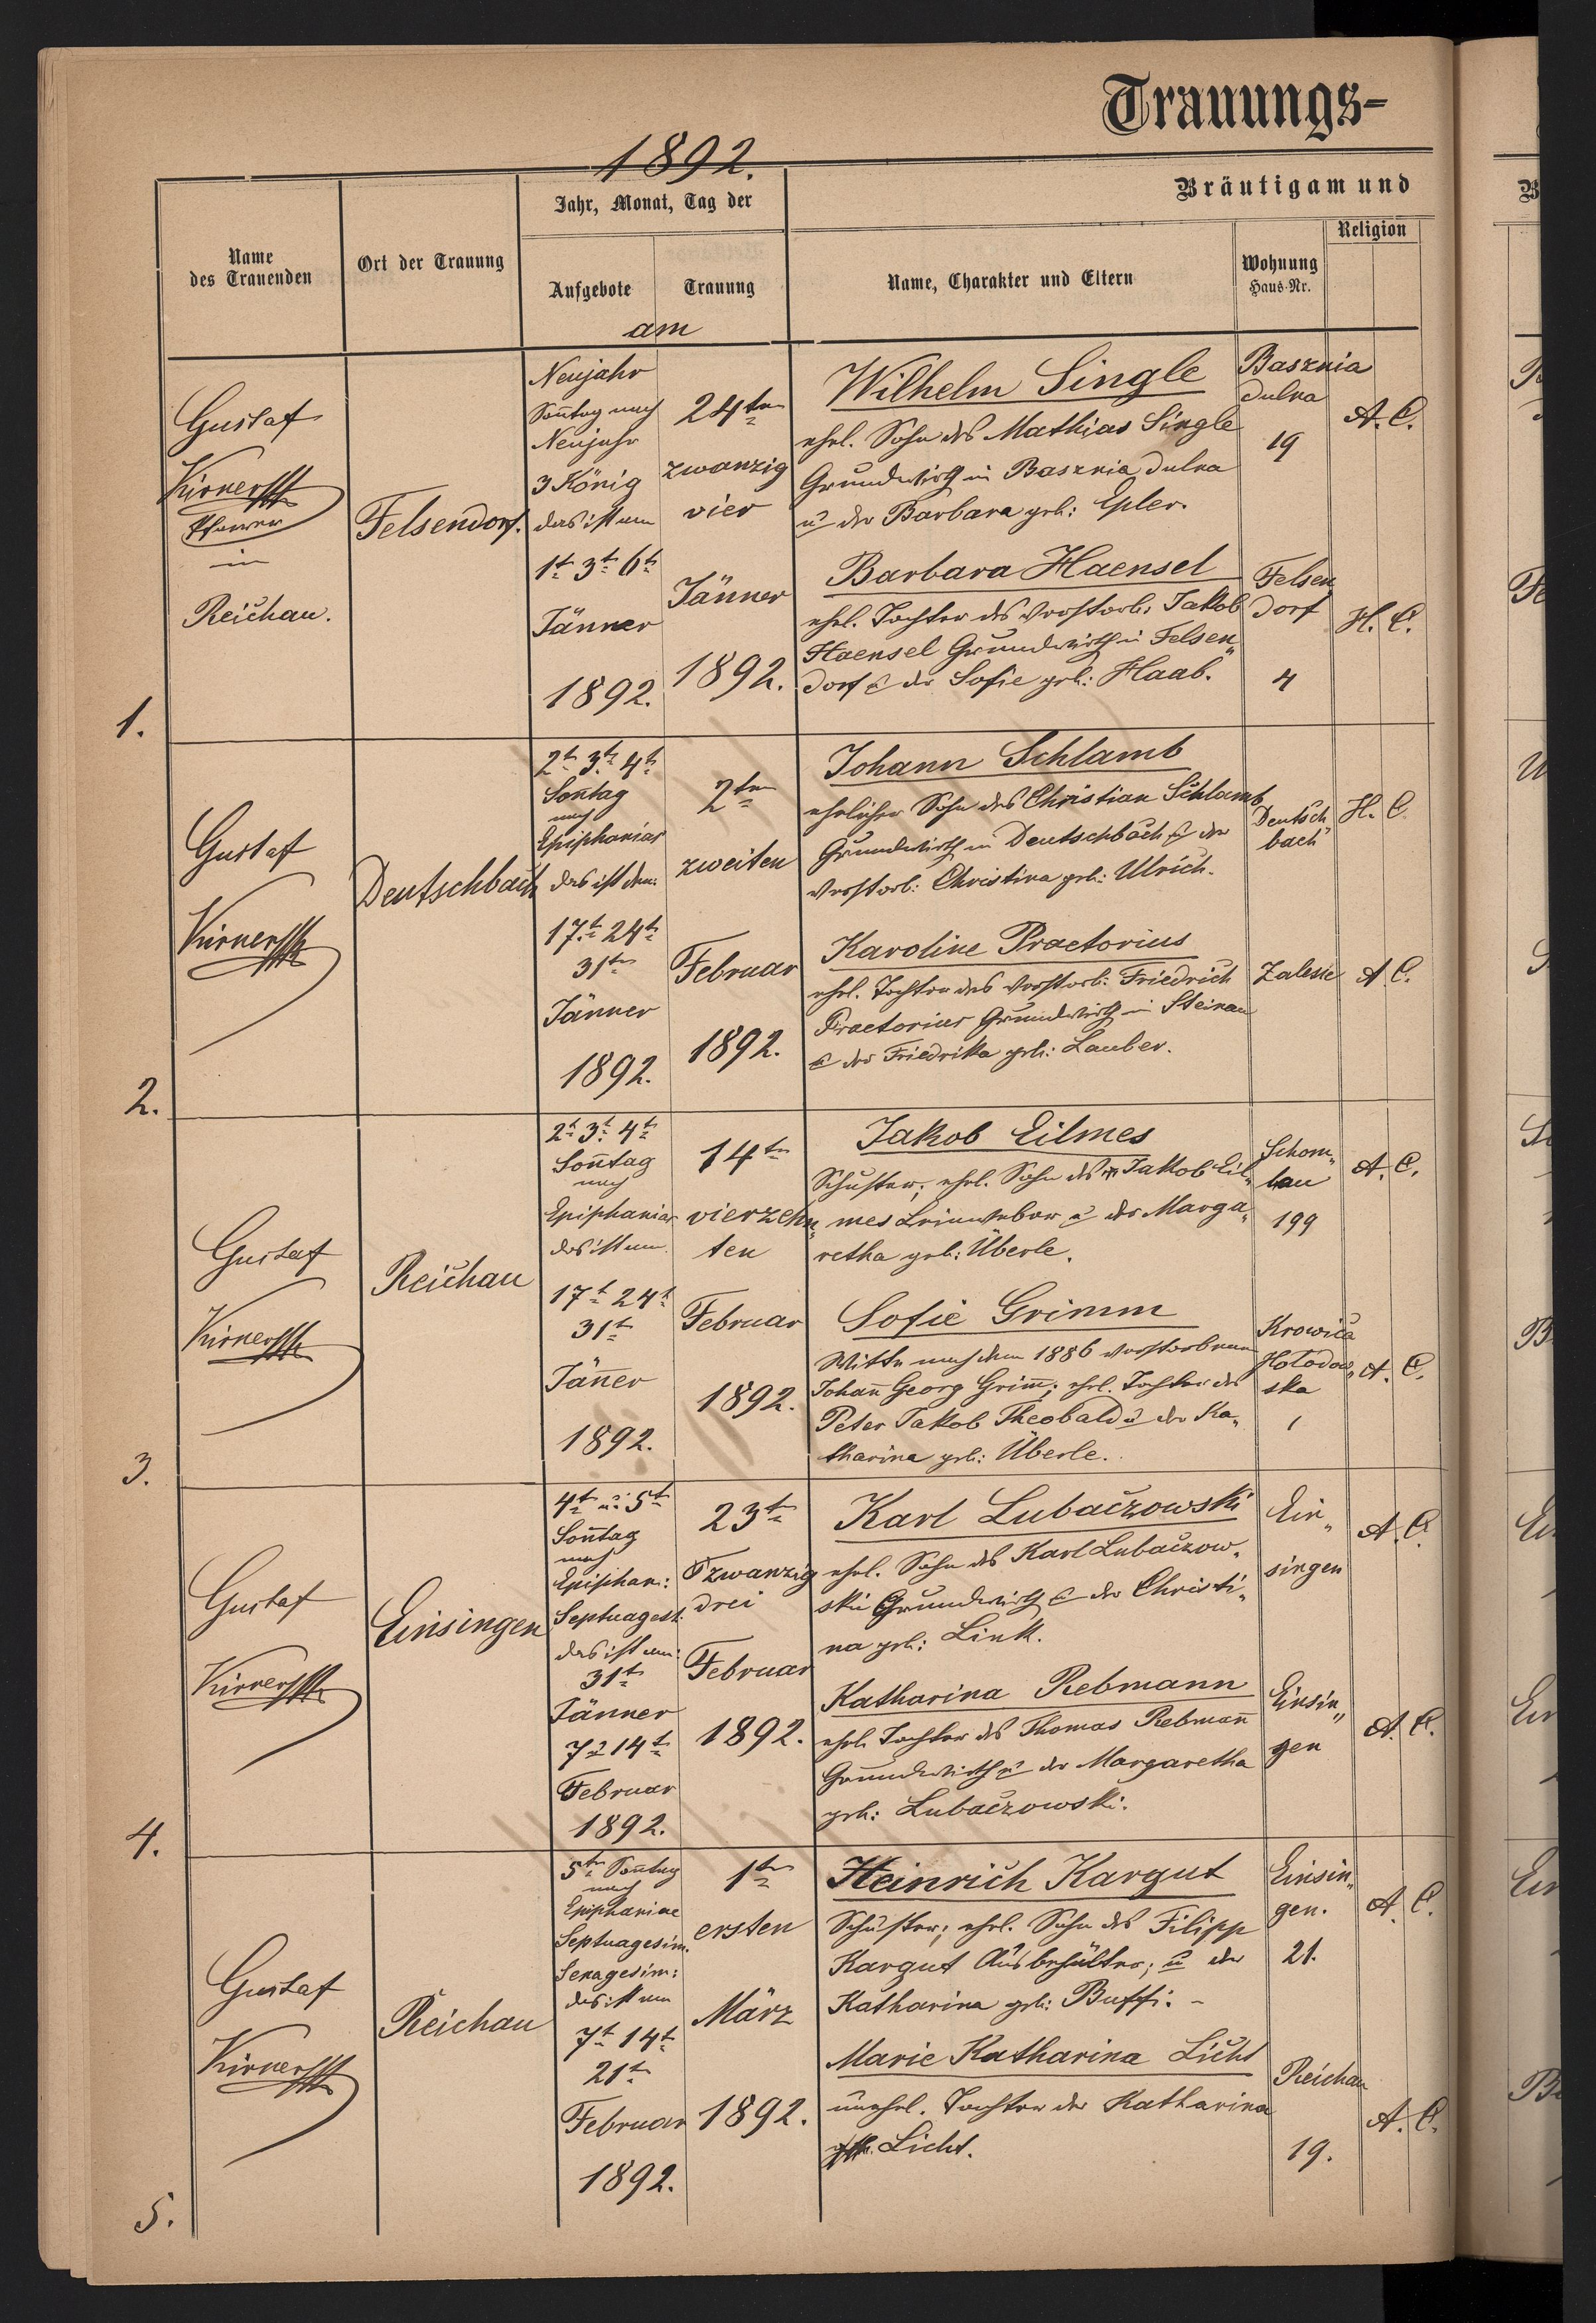 Trauungs-
1892.
Bräutigam und
Name
des Trauenden
Ort der Trauung
Jahr, Monat, Tag der
Aufgebote
Trauung
am
Name, Charakter und Eltern
Wohnung
Haus-Nr.
Religion
1.
Gustaf
Kirner
Pfarrer
in
Reichau.
Felsendorf.
Neujahr
Soñtag nach
Neujahr
3 König
das ist am
1t 3t 6t
Jänner
1892.
24ten
zwanzig
vier
Jänner
1892.
Wilhelm Single
ehel. Sohn des Mathias Single
Grundwirth in Basznia dulna
u der Barbara geb: Epler.
Basznia
dulna
19
A. C.
Barbara Haensel
ehel. Tochter des verstorb. Jakob
Haensel Grundwirth in Felsen„
dorf u der Sofie geb: Haab.
Felsen„
dorf
4
H. C.
2.
Gustaf
Kirner
Deutschbach
2t 3t 4t
Soñtag
nach
Epiphanias
das ist den:
17.t 24t
31t
Jänner
1892.
2ten
zweiten
Februar
1892.
Johann Schlamb
ehelicher Sohn des Christian Schlamb
Grundwirth in Deutschbach u der
verstorb: Christina geb: Ulrich.
Deutsch„
bach
H. C.
Karoline Praetorius
ehel. Tochter des verstorb: Friedrich
Praetorius Grundwirth in Steinau
u der Friedrika geb: Lauber.
Zalesie
A C.
3.
Gustaf
Kirner
Reichau
2t 3t 4t
Soñtag
nach
Epiphanias
das ist am
17t 24t
31t
Jäñer
1892.
14ten
vierzehn„
ten
Februar
1892.
Jakob Eilmes
Schuster; ehel. Sohn des Jakob Eil„
mes Leinweber u der Marga„
retha geb: Überle.
Schom„
lau
199
A. C.
Sofie Grimm
Witte nach dem 1886 verstorbenen
Johañ Georg Grim̃; ehel. Tochter des
Peter Jakob Theobald u der Ka„
tharina geb: Überle.
Krowica
Hołodow„
ska
1
A. C.
4.
Gustaf
Kirner
Einsingen
4t u: 5t
Soñtag
nach
Epiphan:
Septuages:
das ist am:
31t
Jänner
7 u 14t
Februar
1892.
23t
zwanzig
drei
Februar
1892.
Karl Lubaczowski
ehel. Sohn des Karl Lubaczow„
ski Grundwirth u der Christi„
na geb: Link.
Ein„
singen
A. C.
Katharina Rebmann
ehel. Tochter des Thomas Rebmañ
Grundwirth u der Margaretha
geb: Lubaczowski.
Einsin„
gen
A. C.
5.
Gustaf
Kirner
Reichau
5t Soñtag
nach
Epiphaniae
Septuagesim.
Sexagesim:
das ist am
7t 14t
21t
Februar
1892.
1ten
ersten
März
1892.
Heinrich Kargut
Schuster; ehel. Sohn des Filipp
Kargut Ausbehälter; u der
Katharina geb: Buffi. –
Einsin„
gen.
21.
A. C.
Marie Katharina Licht
unehel. Tochter der Katharina
Licht.
Reichau
19.
A. C.